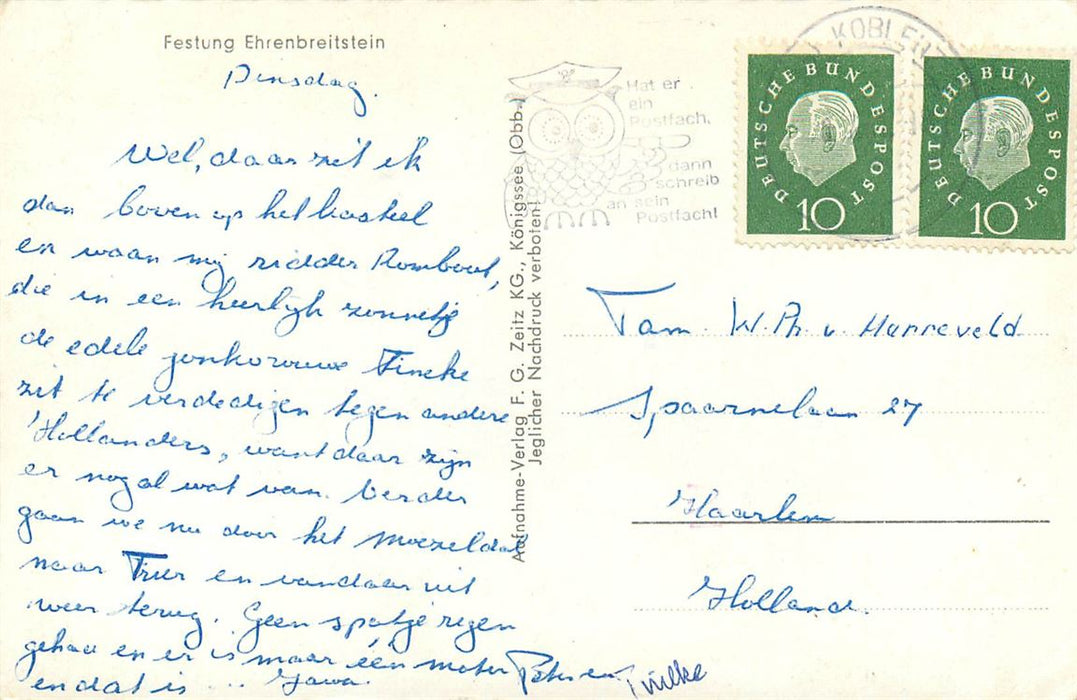 Festung Ehrenbreitstein
Dinsdag.
Wel, daar zit ik
dan boven op het kasteel
en waan mij ridder Rombout,
die in een heerlijk zonnetje
de edele jonkvrouwe Tineke
zit te verdedigen tegen andere
Hollanders, want daar zijn
er nogal wat van. Verder
gaan we nu door het Moezeldal
naar Trier en vandaar uit
weer terug. Geen spatje regen
gehad en er is maar één motor
en dat is ... Jawa. Peter en Tineke
Aufnahme-Verlag F. G. Zeitz KG., Königssee (Obb.)
Jeglicher Nachdruck verboten!
Hat er
ein
Postfach,
dann
schreib
an sein
Postfach!
KOBLENZ
DEUTSCHE BUNDESPOST
10
DEUTSCHE BUNDESPOST
10
Fam. W. Ph. v. Hanneveld
Spaarnelaan 27
Haarlem
Holland.